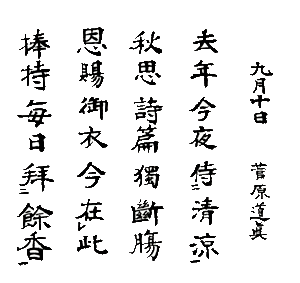 九月十日 菅原道真
去年今夜侍二清涼一
秋思詩篇獨斷腸
恩賜御衣今在レ此
捧持每日拜二餘香一